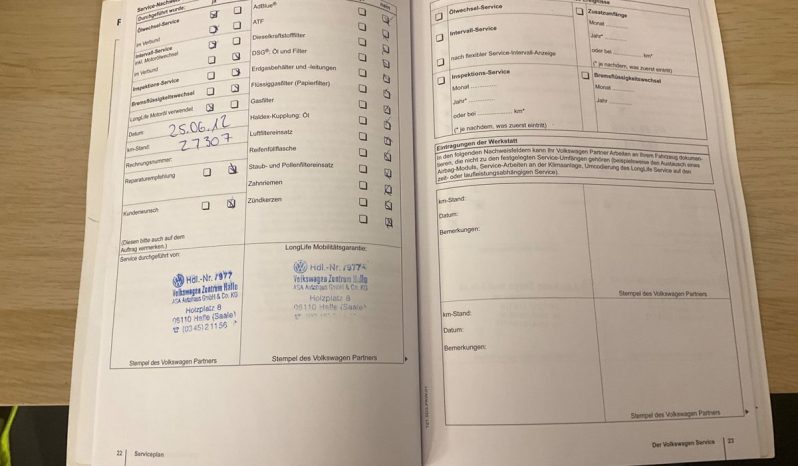 Service-Nachweis
ja
nein
Durchgeführt wurde:
F
Ölwechsel-Service
im Verbund
Intervall-Service
inkl. Motorölwechsel
im Verbund
Inspektions-Service
Bremsflüssigkeitswechsel
LongLife Motoröl verwendet:
Datum:
25.06.12
km-Stand:
27307
Rechnungsnummer:
Reparaturempfehlung
Kundenwunsch
(Diesen bitte auch auf dem
Auftrag vermerken.)
AdBlue®
ATF
Dieselkraftstofffilter
DSG®: Öl und Filter
Erdgasbehälter und -leitungen
Flüssiggasfilter (Papierfilter)
Gasfilter
Haldex-Kupplung: Öl
Luftfiltereinsatz
Reifenfüllflasche
Staub- und Pollenfiltereinsatz
Zahnriemen
Zündkerzen
Service durchgeführt von:
Hdl.-Nr. 7977
Volkswagen Zentrum Halle
ASA Autohaus GmbH & Co. KG
Holzplatz 8
06110 Halle (Saale)
☎ (0345) 21156
Stempel des Volkswagen Partners
LongLife Mobilitätsgarantie:
Hdl.-Nr.
Volkswagen Zentrum Halle
ASA Autohaus GmbH & Co. KG
Holzplatz 8
06110 Halle (Saale)
Stempel des Volkswagen Partners
22
Serviceplan
Ölwechsel-Service
Intervall-Service
nach flexibler Service-Intervall-Anzeige
Inspektions-Service
Monat
Jahr*
oder bei km*
(* je nachdem, was zuerst eintritt)
Zusatzumfänge
Monat
Jahr*
oder bei km*
(* je nachdem, was zuerst eintritt)
Bremsflüssigkeitswechsel
Monat
Jahr
Eintragungen der Werkstatt
In den folgenden Nachweisfeldern kann Ihr Volkswagen Partner Arbeiten an Ihrem Fahrzeug dokumen-
tieren, die nicht zu den festgelegten Service-Umfängen gehören (beispielsweise den Austausch eines
Airbag-Moduls, Service-Arbeiten an der Klimaanlage, Umcodierung des LongLife Service auf den
zeit- oder laufleistungsabhängigen Service).
km-Stand:
Datum:
Bemerkungen:
Stempel des Volkswagen Partners
km-Stand:
Datum:
Bemerkungen:
Stempel des Volkswagen Partners
Der Volkswagen Service
23